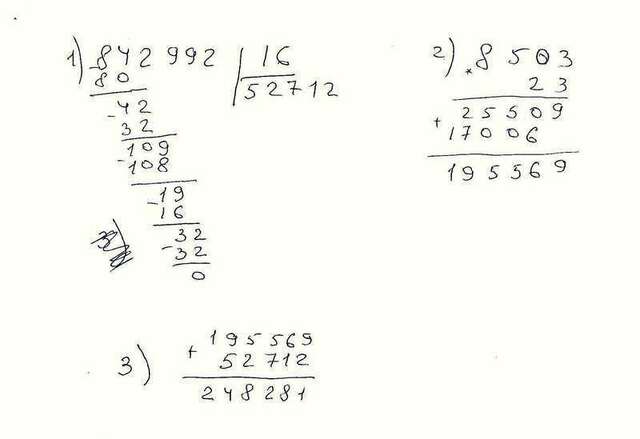 1) 842 992 | 16
- 80 52712
- 42
32
109
- 108
- 19
16
- 32
32
0
2) × 8503
23
+ 25509
17006
195569
3) + 195569
52712
248281